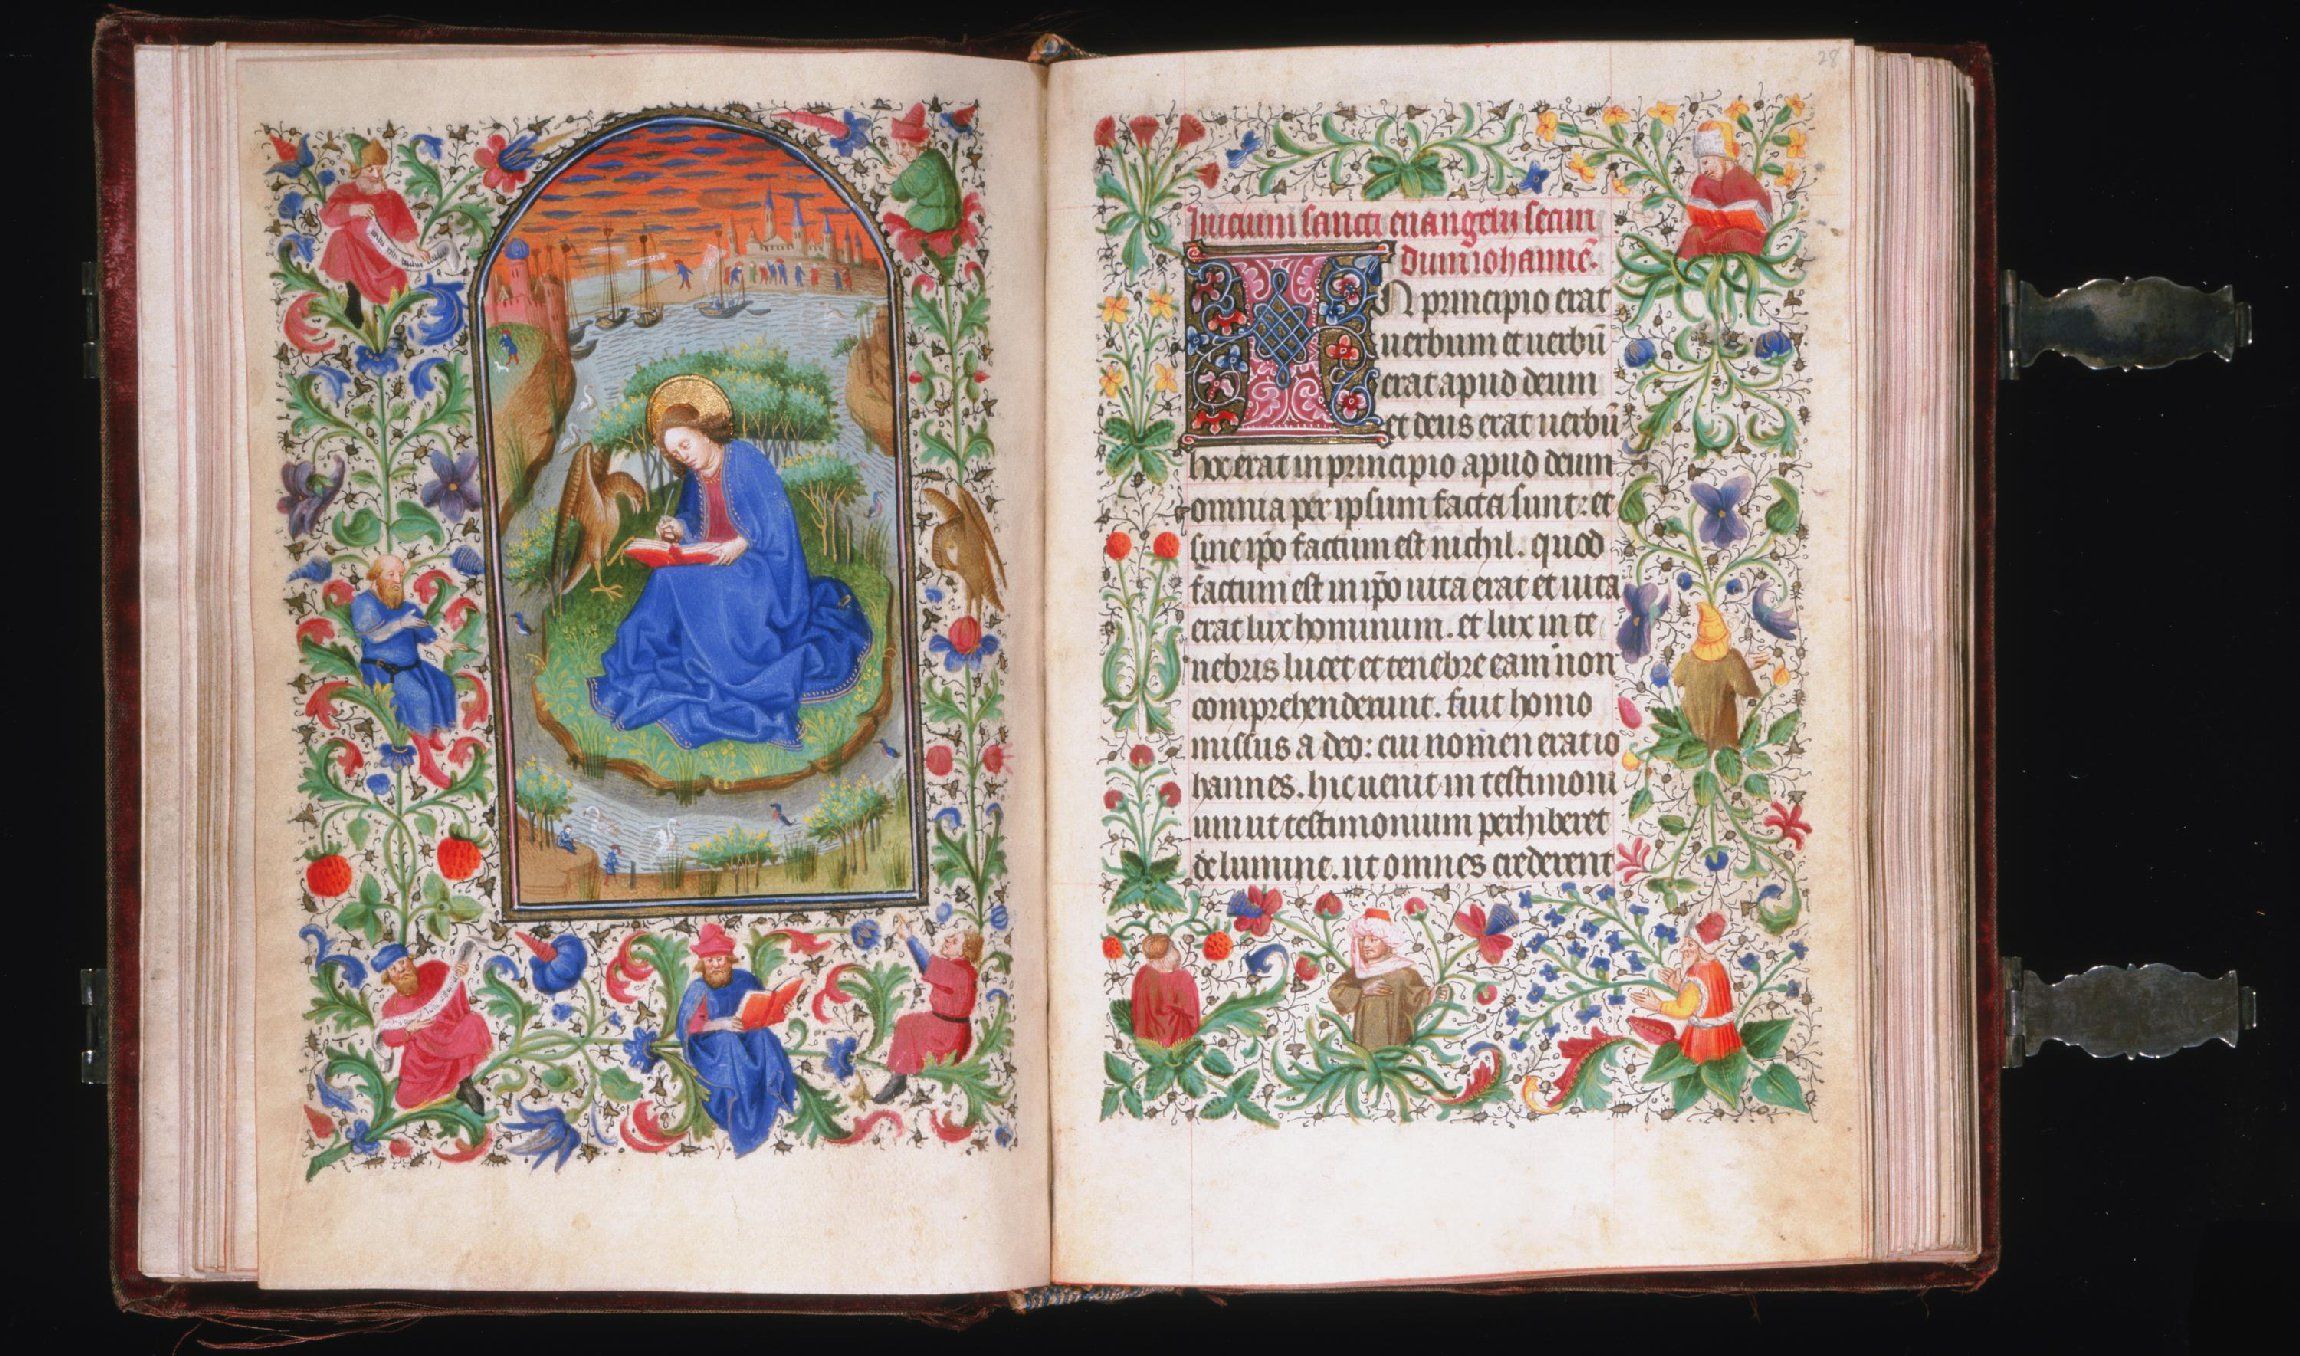 28
Inicium sancti euangelii secun
dum iohannē.
IN principio erat
uerbum et uerbū
erat apud deum
et deus erat uerbū
hoc erat in principio apud deum
omnia per ipsum facta sunt: et
sine ip̄o factum est nichil. quod
factum est in ip̄o uita erat et uita
erat lux hominum. et lux in te
nebris lucet et tenebre eam non
comprehenderunt. fuit homo
missus a deo: cui nomen erat io
hannes. hic uenit in testimoni
um ut testimonium perhiberet
de lumine. ut omnes crederent